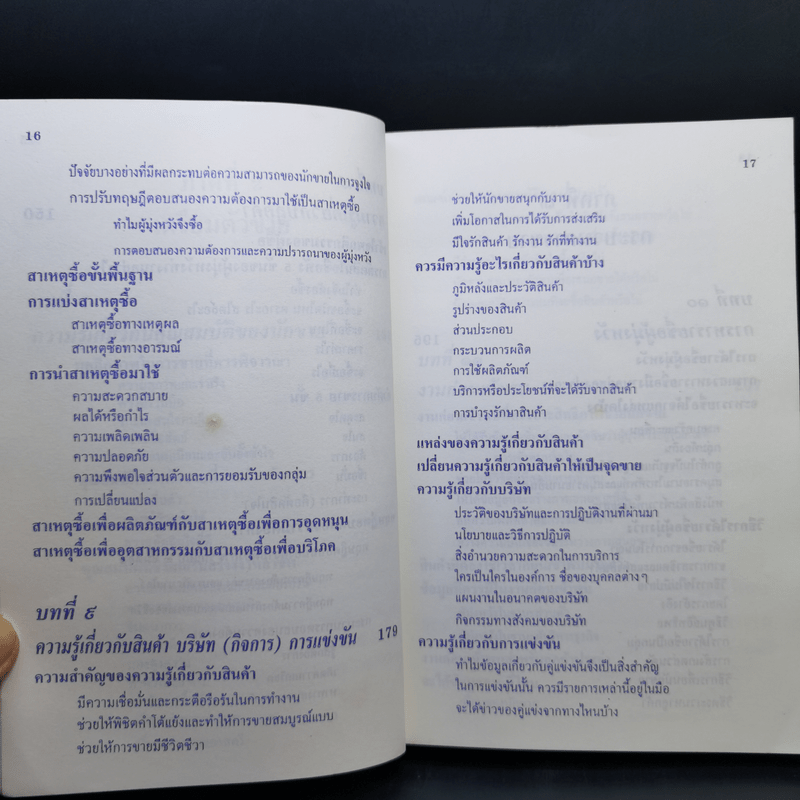 16
ปัจจัยบางอย่างที่มีผลกระทบต่อความสามารถของนักขายในการจูงใจ
การปรับทฤษฎีตอบสนองความต้องการมาใช้เป็นสาเหตุซื้อ
ทำไมผู้มุ่งหวังจึงซื้อ
การตอบสนองความต้องการและความปรารถนาของผู้มุ่งหวัง
สาเหตุซื้อขั้นพื้นฐาน
การแบ่งสาเหตุซื้อ
สาเหตุซื้อทางเหตุผล
สาเหตุซื้อทางอารมณ์
การนำสาเหตุซื้อมาใช้
ความสะดวกสบาย
ผลได้หรือกำไร
ความเพลิดเพลิน
ความปลอดภัย
ความพึงพอใจส่วนตัวและการยอมรับของกลุ่ม
การเปลี่ยนแปลง
สาเหตุซื้อเพื่อผลิตภัณฑ์กับสาเหตุซื้อเพื่อการอุดหนุน
สาเหตุซื้อเพื่ออุตสาหกรรมกับสาเหตุซื้อเพื่อบริโภค
บทที่ ๙
ความรู้เกี่ยวกับสินค้า บริษัท (กิจการ) การแข่งขัน 179
ความสำคัญของความรู้เกี่ยวกับสินค้า
มีความเชื่อมั่นและกระตือรือร้นในการทำงาน
ช่วยให้พิชิตคำโต้แย้งและทำให้การขายสมบูรณ์แบบ
ช่วยให้การขายมีชีวิตชีวา
17
ช่วยให้นักขายสนุกกับงาน
เพิ่มโอกาสในการได้รับการส่งเสริม
มีใจรักสินค้า รักงาน รักที่ทำงาน
ควรมีความรู้อะไรเกี่ยวกับสินค้าบ้าง
ภูมิหลังและประวัติสินค้า
รูปร่างของสินค้า
ส่วนประกอบ
กระบวนการผลิต
การใช้ผลิตภัณฑ์
บริการหรือประโยชน์ที่จะได้รับจากสินค้า
การบำรุงรักษาสินค้า
แหล่งของความรู้เกี่ยวกับสินค้า
เปลี่ยนความรู้เกี่ยวกับสินค้าให้เป็นจุดขาย
ความรู้เกี่ยวกับบริษัท
ประวัติของบริษัทและการปฏิบัติงานที่ผ่านมา
นโยบายและวิธีการปฏิบัติ
สิ่งอำนวยความสะดวกในการบริการ
ใครเป็นใครในองค์การ ชื่อของบุคคลต่างๆ
แผนงานในอนาคตของบริษัท
กิจกรรมทางสังคมของบริษัท
ความรู้เกี่ยวกับการแข่งขัน
ทำไมข้อมูลเกี่ยวกับคู่แข่งขันจึงเป็นสิ่งสำคัญ
ในการแข่งขันนั้น ควรมีรายการเหล่านี้อยู่ในมือ
จะได้ข่าวของคู่แข่งจากทางไหนบ้าง